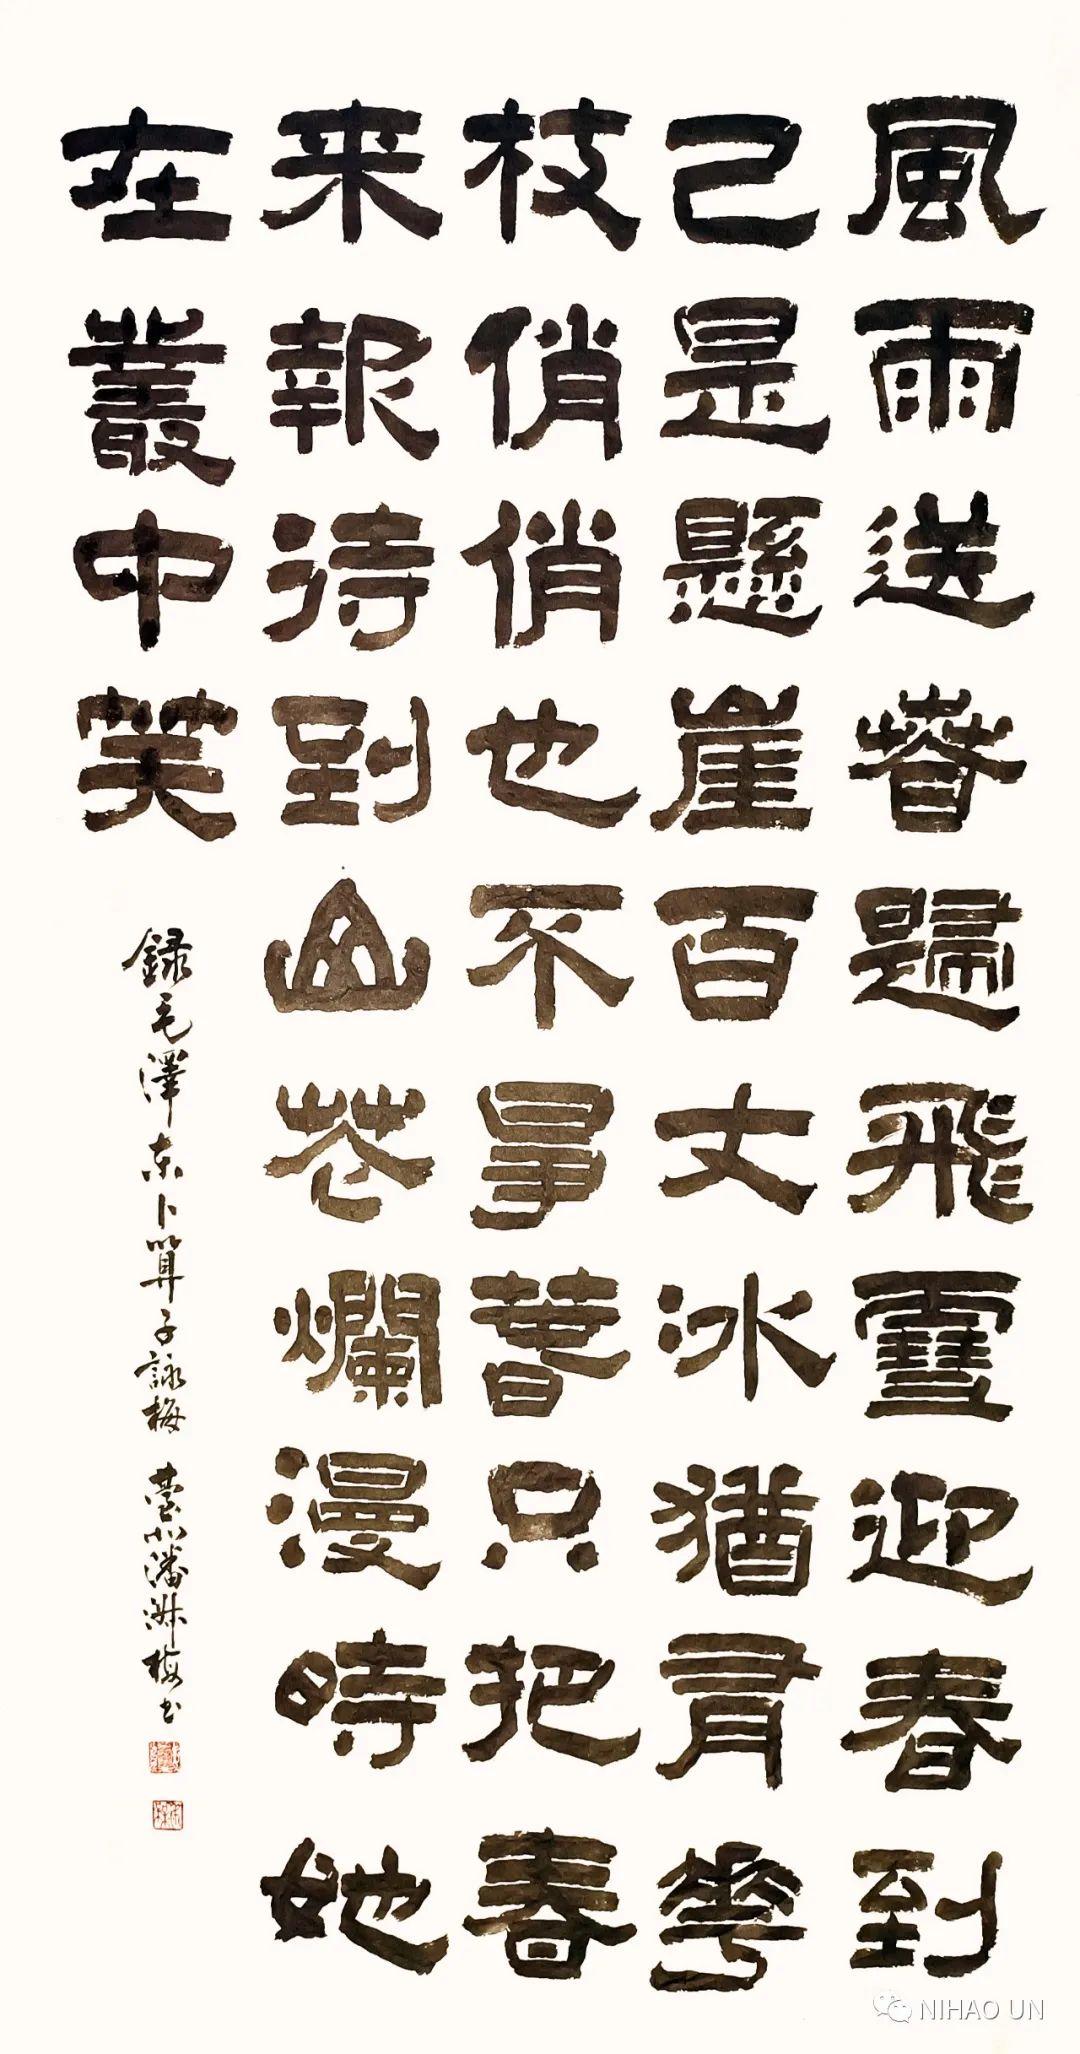 風雨送春歸飛雪迎春到
已是懸崖百丈冰猶有華
枝俏俏也不爭春只把春
来報待到山花爛漫時她
在叢中笑
録毛澤东卜算子詠梅 臺北潘淑梅书
NIHAO UN